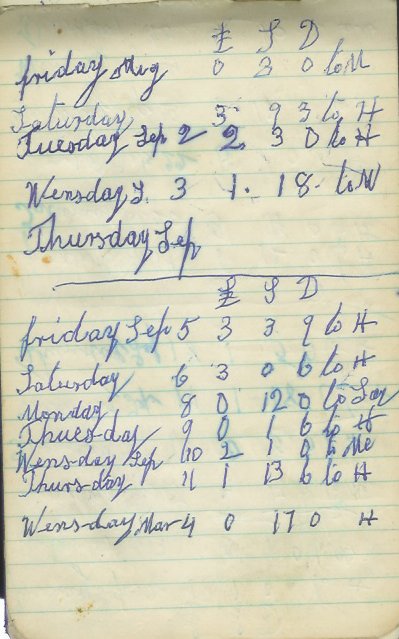 £ S D
friday Aug 0 3 0 to M
Saturday 3 9 3 to H
Tuesday Sep 2 2 3 0 to H
Wensday S. 3 1. 18. to M
Thursday Sep
£ S D
friday Sep 5 3 3 9 to H
Saturday 6 3 0 6 to H
Monday 8 0 12 0 to
Thuesday 9 0 1 6 to H
Wens-day Sep 10 2 1 9 to Me
Thursday 11 1 13 6 to H
Wens-day Mar 4 0 17 0 H